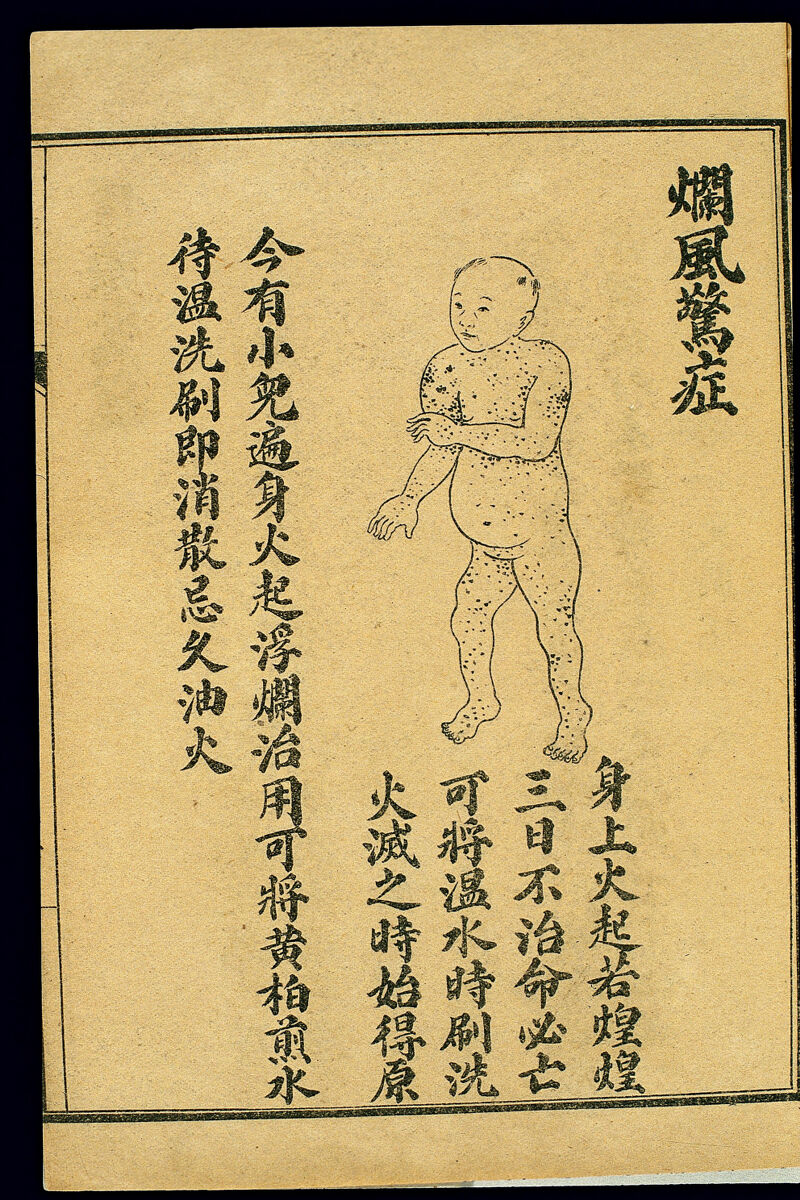 爛風驚症
身上火起若煌煌
三日不治命必亡
可將温水時刷洗
火滅之時始得原
今有小兒遍身火起浮爛治用可將黄柏煎水
待温洗刷即消散忌久油火